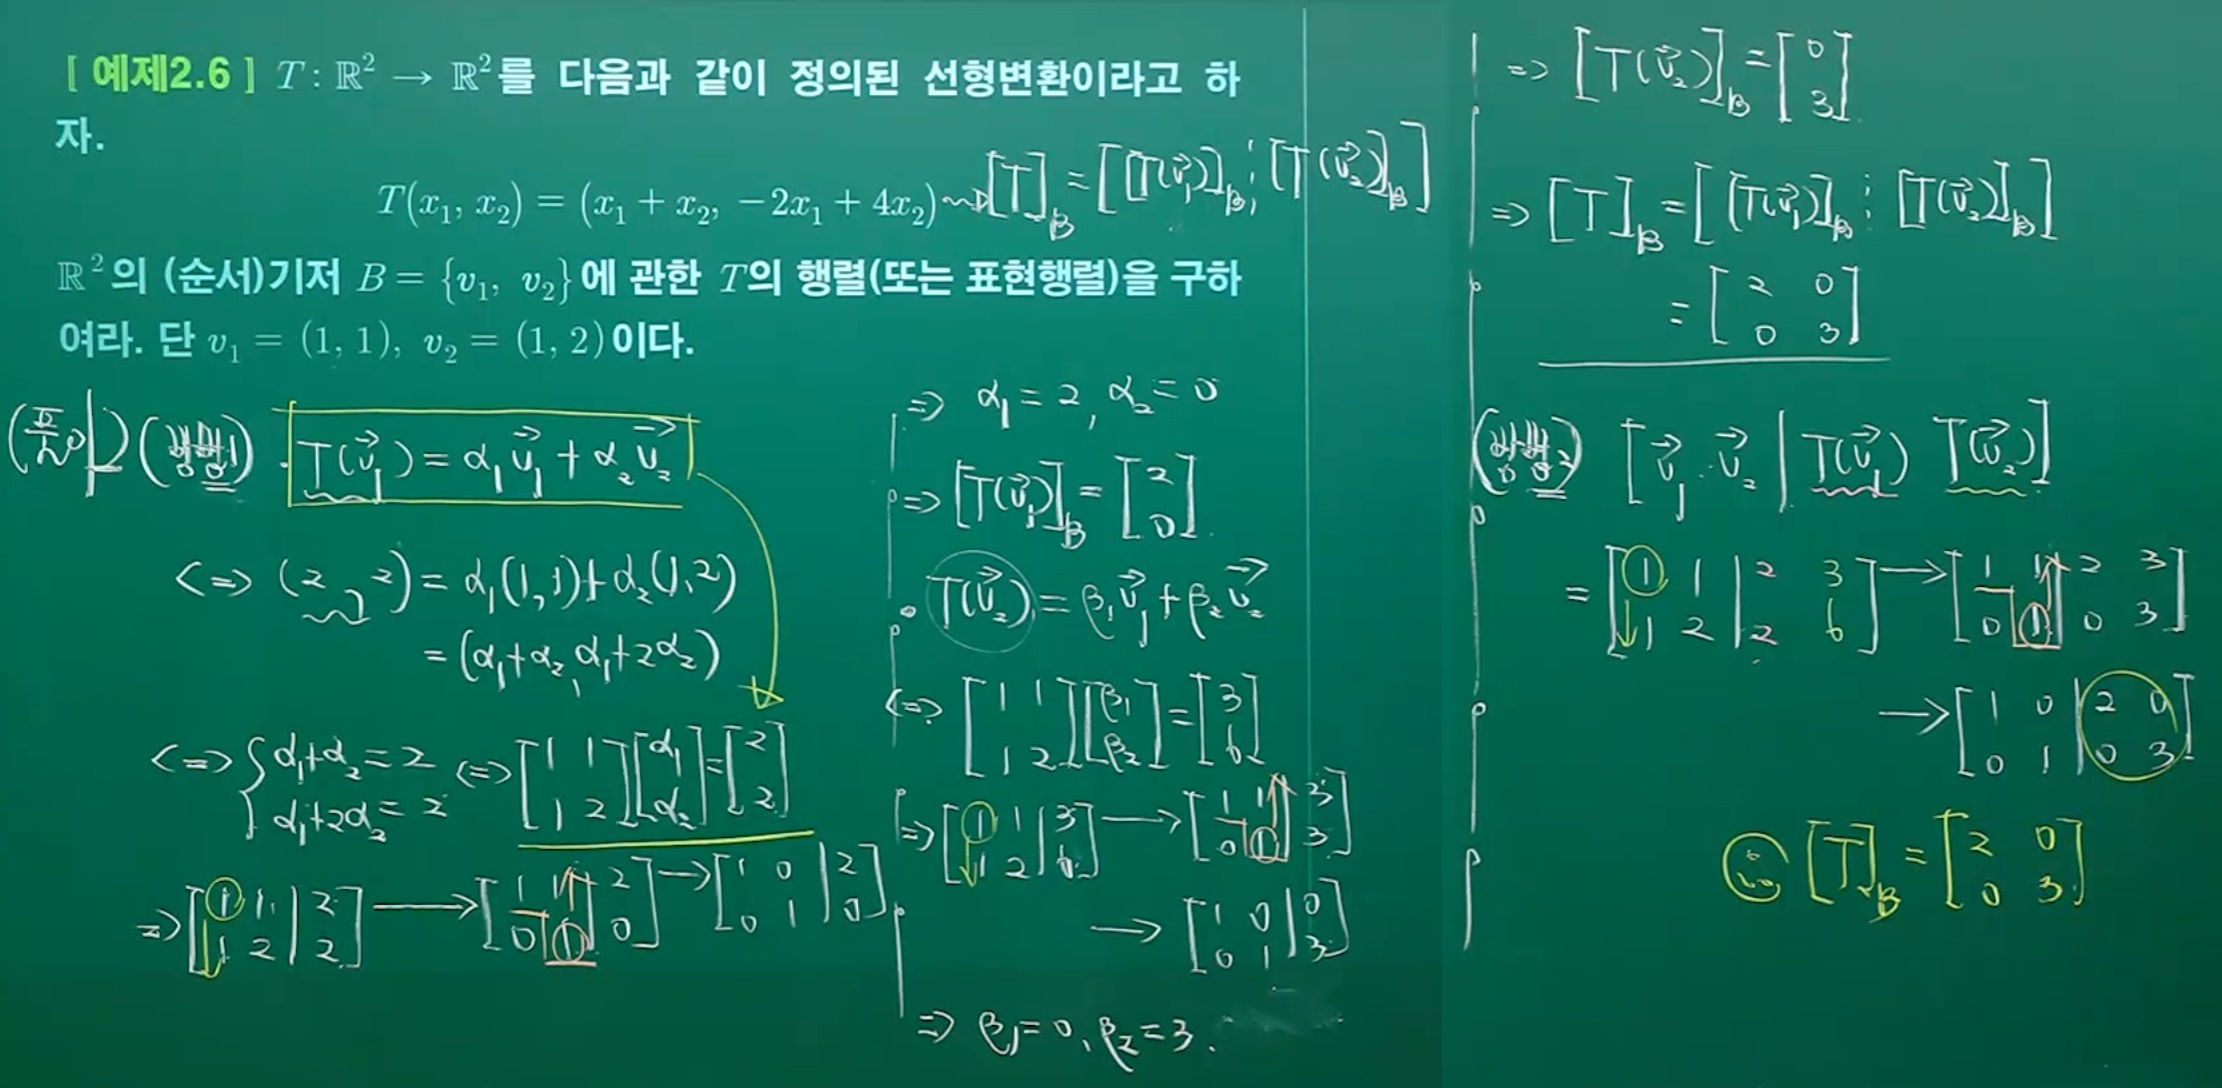 [ 예제2.6 ] T : ℝ² → ℝ²를 다음과 같이 정의된 선형변환이라고 하
자.
T(x₁, x₂) = (x₁ + x₂, −2x₁ + 4x₂) ⇝ [T]_B = [[T(v₁→)]_B ⋮ [T(v₂→)]_B]
ℝ²의 (순서)기저 B = {v₁, v₂}에 관한 T의 행렬(또는 표현행렬)을 구하
여라. 단 v₁ = (1, 1), v₂ = (1, 2)이다.
(풀이) (방법1) · T(v₁→) = α₁v₁→ + α₂v₂→
<=> (2, 2) = α₁(1,1) + α₂(1,2)
= (α₁+α₂, α₁+2α₂)
<=> { α₁+α₂ = 2
α₁+2α₂ = 2
<=> [1 1; 1 2][α₁; α₂] = [2; 2]
=> [1 1 | 2; 1 2 | 2] → [1 1 | 2; 0 1 | 0] → [1 0 | 2; 0 1 | 0]
=> α₁ = 2, α₂ = 0
=> [T(v₁→)]_B = [2; 0]
· T(v₂→) = β₁v₁→ + β₂v₂→
<=> [1 1; 1 2][β₁; β₂] = [3; 6]
=> [1 1 | 3; 1 2 | 6] → [1 1 | 3; 0 1 | 3]
→ [1 0 | 0; 0 1 | 3]
=> β₁ = 0, β₂ = 3.
=> [T(v₂→)]_B = [0; 3]
=> [T]_B = [[T(v₁→)]_B ⋮ [T(v₂→)]_B]
= [2 0; 0 3]
(방법2) [v₁→ v₂→ | T(v₁→) T(v₂→)]
= [1 1 | 2 3; 1 2 | 2 6] → [1 1 | 2 3; 0 1 | 0 3]
→ [1 0 | 2 0; 0 1 | 0 3]
∴ [T]_B = [2 0; 0 3]